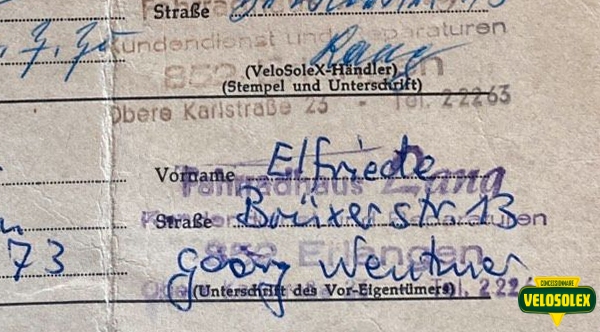 Straße
Kundendienst und Reparaturen
852
(VeloSoleX-Händler)
(Stempel und Unterschrift)
Obere Karlstraße 23 - Tel. 22263
Vorname Elfriede
Fahrradhaus Lang
Straße Brüxerstr 13
Reparaturen
73
852 Erlangen
Georg
(Unterschrift des Vor-Eigentümers)
Tel. 22
CONCESSIONNAIRE
VELOSOLEX